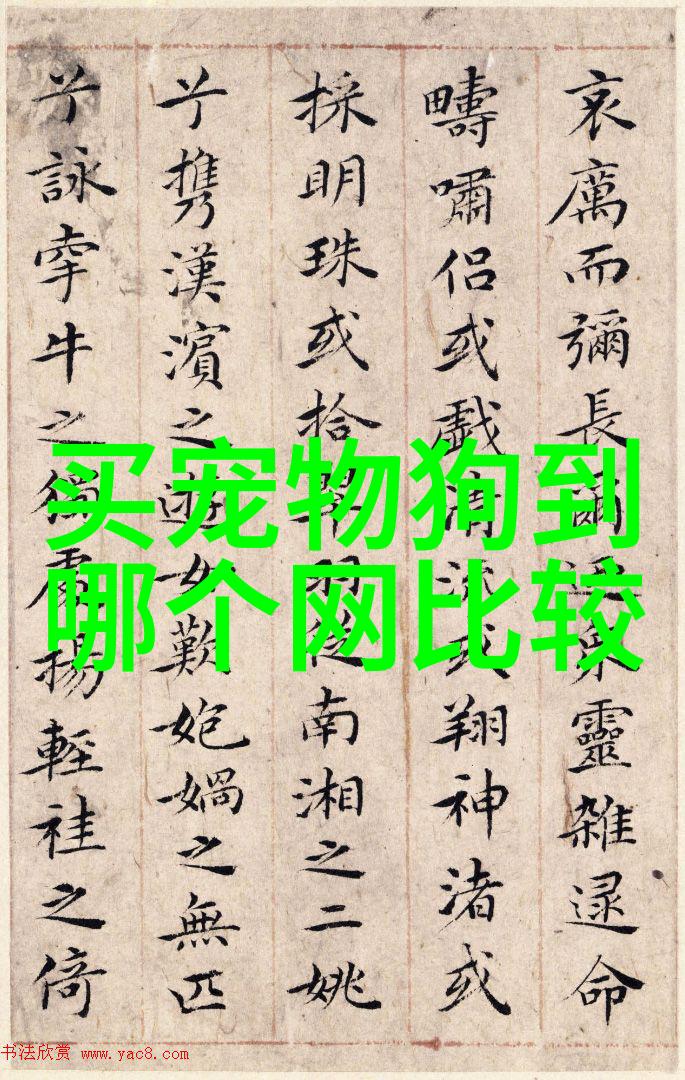 哀厲而彌長爾迺衆靈雜遝命
疇嘯侶或戲清流或翔神渚或
採明珠或拾翠羽從南湘之二姚
兮攜漢濱之遊女歎㚿媧之無匹
兮詠牽牛之獨處揚輕袿之倚
买宠物狗到
哪个网比较
书法欣赏 www.yac8.com